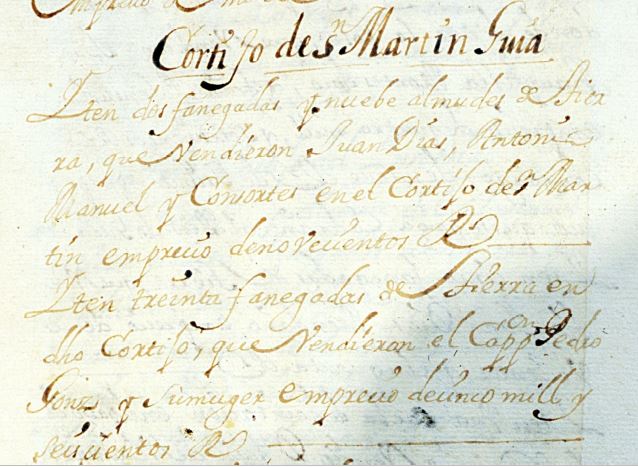 Cortijo de Sn Martin Guia
Yten dos fanegadas y nuebe almudes de tier
ra, que Vendieron Juan Dias, Antonio
Manuel y Consortes en el Cortijo de Sn Mar
tin em precio de novecientos Rs
Yten treinta fanegadas de tierra en
dho Cortijo, que Vendieron el Cappon Pedro
Gonzs y su muger em precio de cinco mill y
seiscientos Rs